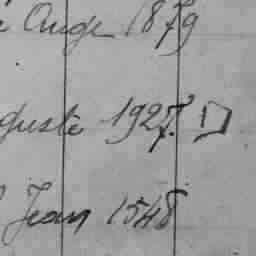 Ange 1879
guste 1927. D
Jean 1548